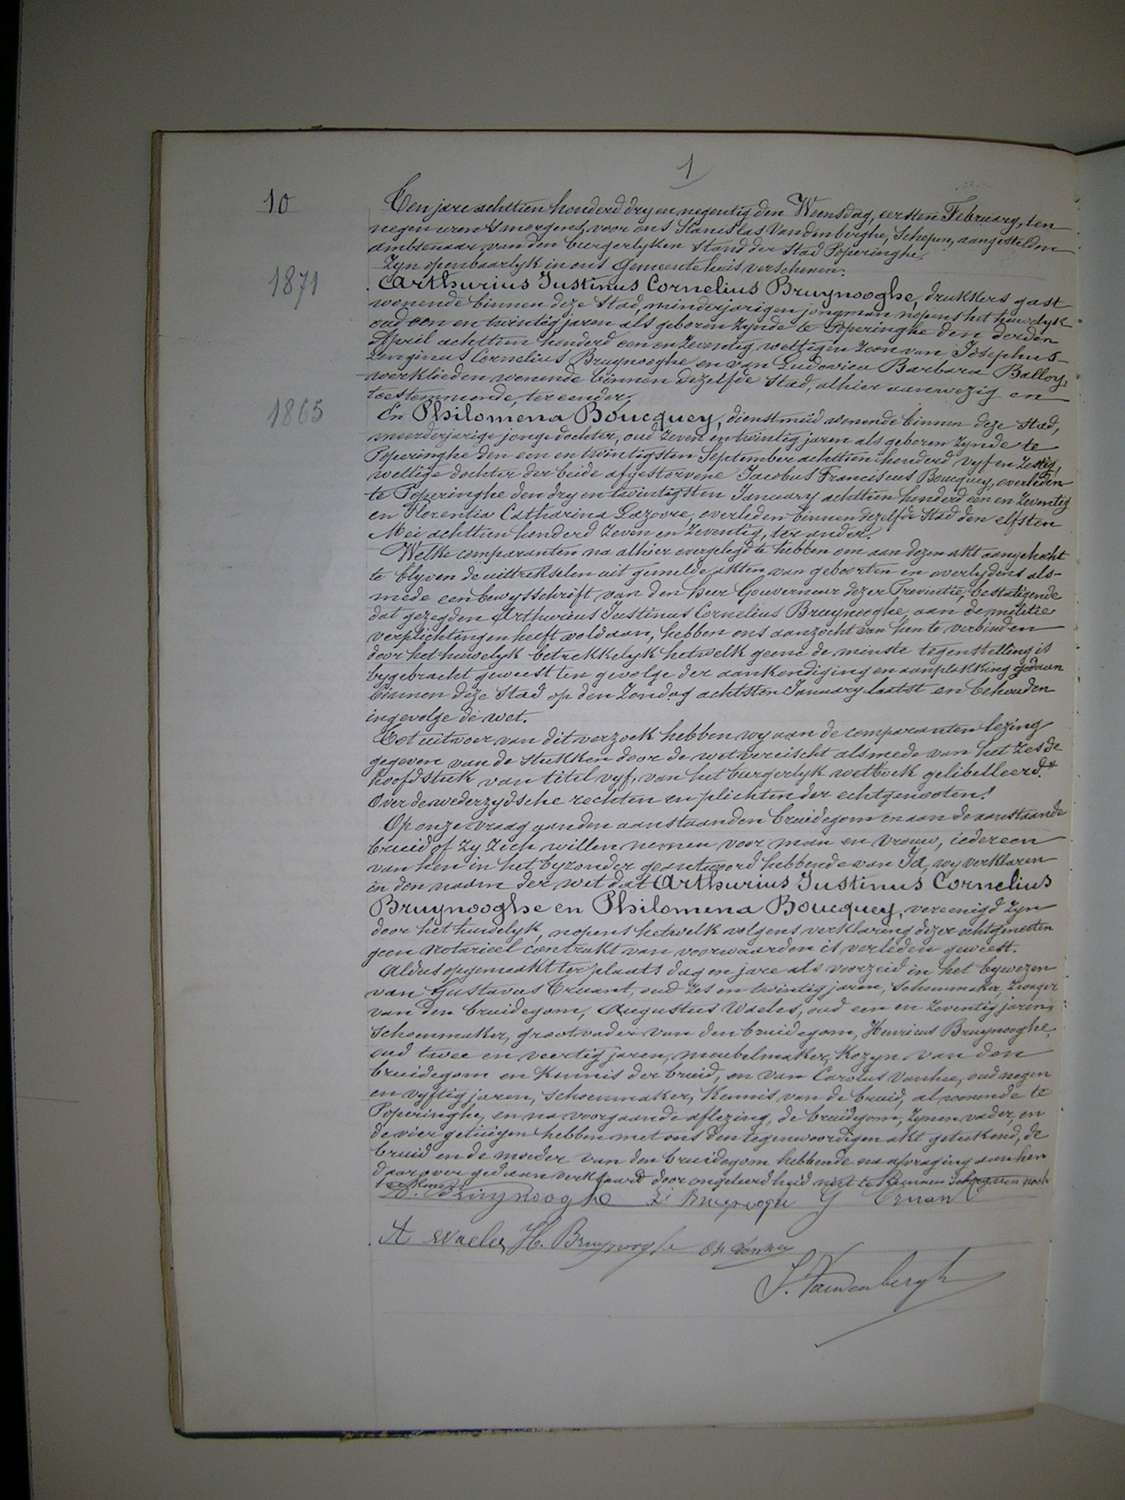 1
10
Ten jare achttien honderd dry en negentig den Weensdag, eersten February, ten
negen uren 's morgens, voor ons Stanislas Vandenberghe, Schepen, aangestelden
ambtenaar van den burgerlyken stand der Stad Poperinghe.
Zyn openbaarlyk in ons gemeentehuis verschenen.
1871
Arthurius Justinus Cornelius Bruynooghe, drukkers gast
wonende binnen deze Stad, minderjarigen jongman nopens het huwelyk
oud een en twintig jaren als geboren zynde te Poperinghe den derden
April achttien honderd een en zeventig wettigen zoon van Josephus
Longinus Cornelius Bruynooghe en van Ludovica Barbara Balloy,
werklieden wonende binnen dezelfde Stad, alhier aanwezig en
toestemmende, ter eender.
1865
En Philomena Boucquey, dienstmeid wonende binnen deze Stad,
meerderjarige jonge dochter, oud zeven en twintig jaren als geboren zynde te
Poperinghe den een en twintigsten September achttien honderd vyf en zestig,
wettige dochter der beide afgestorvene Jacobus Franciscus Boucquey, overleden
te Poperinghe den dry en twintigsten January achttien honderd een en zeventig
en Florentia Catharina Lazoore, overleden binnen dezelfde Stad den elfsten
Mei achttien honderd zeven en zeventig, ter ander.
Welke comparanten na alhier overgelegd te hebben om aan dezen akt aangehecht
te blyven de uittrekselen uit gemelde akten van geboorten en overlydens als-
mede een bewysschrift van den heer Gouverneur dezer Provintie, bestatigende
dat gezegden Arthurius Justinus Cornelius Bruynooghe, aan de militie
verplichtingen heeft voldaan, hebben ons aanzocht van hen te verbinden
door het huwelyk betrekkelyk hetwelk geene de minste tegenstelling is
bygebracht geweest ten gevolge der aankondiging en aanplakking gedaan
binnen deze Stad op den Zondag achtsten January laatst en behouden
ingevolge de wet.
Tot uitvoer van dit verzoek hebben wy aan de comparanten lezing
gegeven van de stukken door de wet vereischt alsmede van het zesde
hoofdstuk van titel vyf, van het burgerlyk wetboek gelibelleerd."
Over de wederzydsche rechten en plichten der echtgenooten!
Op onze vraag van den aanstaanden bruidegom en aan de aanstaande
bruid of zy zich willen nemen voor man en vrouw, iedereen
van hen in het byzonder geantwoord hebbende van Ja, wy verklaren
in den naam der wet dat Arthurius Justinus Cornelius
Bruynooghe en Philomena Boucquey, vereenigd zyn
door het huwelyk, nopens hetwelk volgens verklaring dezer echtgenooten
geen notarieel contrakt van voorwaarden is verleden geweest.
Aldus opgemaakt ter plaats dag en jare als voorzeid in het bywezen
van Gustavus Cruant, oud zes en twintig jaren, schoenmaker, zwager
van den bruidegom, Augustus Waeles, oud een en zeventig jaren,
schoenmaker, grootvader van den bruidegom, Henricus Bruynooghe,
oud twee en veertig jaren, meubelmaker, kozyn van den
bruidegom en kennis der bruid, en van Carolus Vanhee, oud negen
en vyftig jaren, schoenmaker, kennis van de bruid, al wonende te
Poperinghe, en na voorgaande aflezing, de bruidegom, zynen vader, en
de vier getuigen hebben met ons den tegenwoordigen akt geteekend, de
bruid en de moeder van den bruidegom hebbende na afvraging aan hen
daarover gedaan verklaard door ongeleerdheid niet te kunnen schryven noch
teekenen.
A. Bruynooghe L. Bruynooghe G Cruant
A Waeles H. Bruynooghe Ch Vanhee
S. Vandenberghe